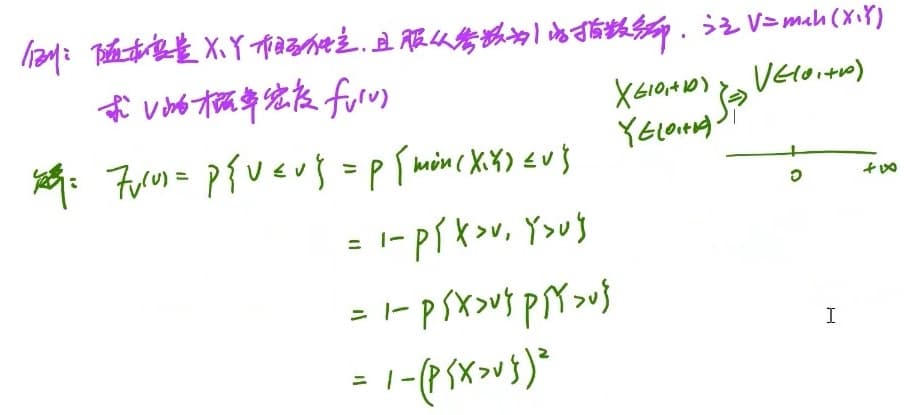 例: 随机变量 X、Y 相互独立, 且服从参数为1的指数分布. 记 V=min(X,Y)
求 V的概率密度 f_V(v)
X∈(0,+∞)
Y∈(0,+∞)
} ⇒ V∈(0,+∞)
0 +∞
解: F_V(v) = P{V≤v} = P{min(X,Y)≤v}
= 1-P{X>v, Y>v}
= 1-P{X>v}P{Y>v}
= 1-(P{X>v})²